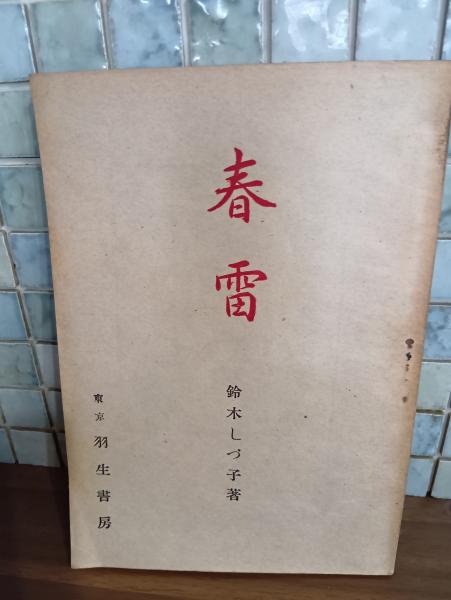 春雷
鈴木しづ子著
東京 羽生書房